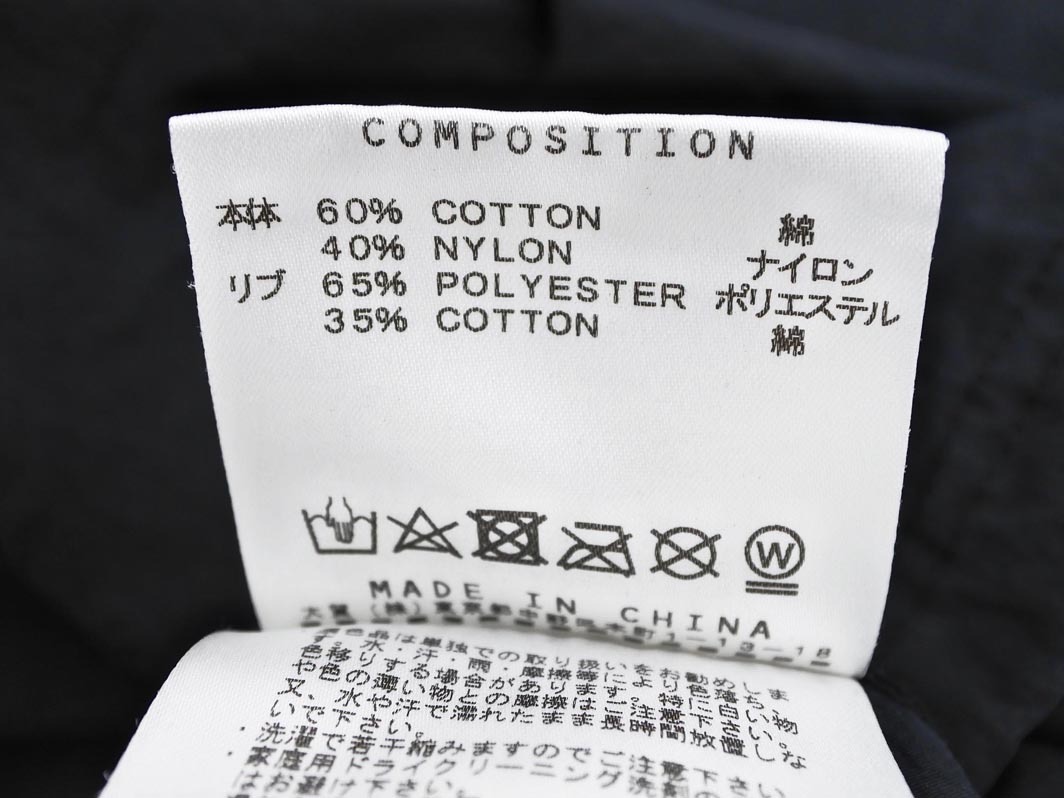 COMPOSITION
本体 60% COTTON 綿
40% NYLON ナイロン
リブ 65% POLYESTER ポリエステル
35% COTTON 綿
W
MADE IN CHINA
(株) 東京都中野区本町1-13-18
色品は単独での取り扱いをお勧めしま
す。水・汗・雨・が摩擦等により色落ちい物
色移りする場合があります。特に白いさい
や色の薄い物との摩擦はご注意下
又、水や汗で濡れたまま長時間放置しな
いで下さい。
・洗濯で若干縮みますのでご注意下さい
・家庭用ドライクリーニング洗剤
はお避け下さ